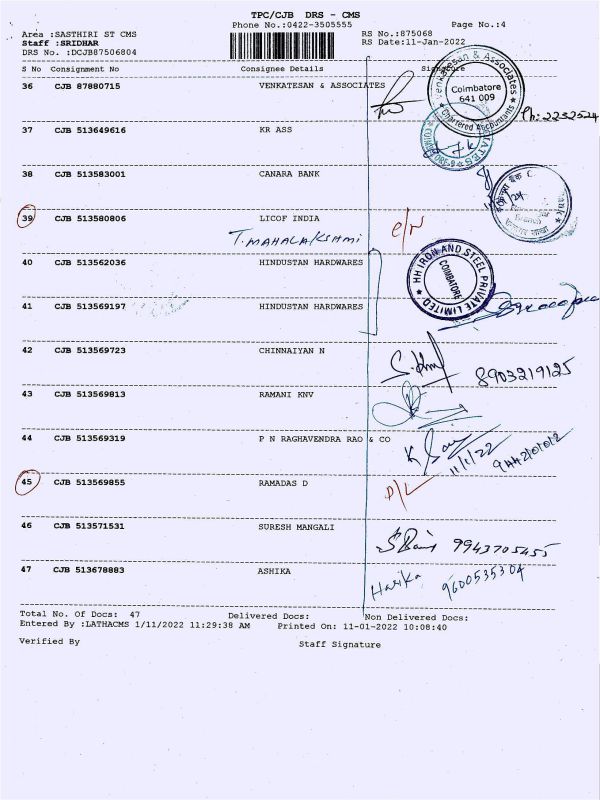 TPC/CJB DRS - CMS
Phone No.:0422-3505555
Page No.:4
Area :SASTHIRI ST CMS
RS No.:875068
Staff :SRIDHAR
RS Date:11-Jan-2022
DRS No. :DCJB87506804
S No Consignment No Consignee Details Signature
36 CJB 87880715 VENKATESAN & ASSOCIATES
Venkatesan & Associates
Coimbatore
641 009
Chartered Accountants
Ph: 2232524
37 CJB 513649616 KR ASS
38 CJB 513583001 CANARA BANK
39 CJB 513580806 LICOF INDIA
T. MAHALAKSHMI
40 CJB 513562036 HINDUSTAN HARDWARES
HH IRON AND STEEL PRIVATE LIMITED
COIMBATORE
41 CJB 513569197 HINDUSTAN HARDWARES
42 CJB 513569723 CHINNAIYAN N
8903219125
43 CJB 513569813 RAMANI KNV
44 CJB 513569319 P N RAGHAVENDRA RAO & CO
11/1/22
45 CJB 513569855 RAMADAS D
D/L
46 CJB 513571531 SURESH MANGALI
9943705455
47 CJB 513678883 ASHIKA
Harika 9600535304
Total No. Of Docs: 47 Delivered Docs: Non Delivered Docs:
Entered By :LATHACMS 1/11/2022 11:29:38 AM Printed On: 11-01-2022 10:08:40
Verified By Staff Signature